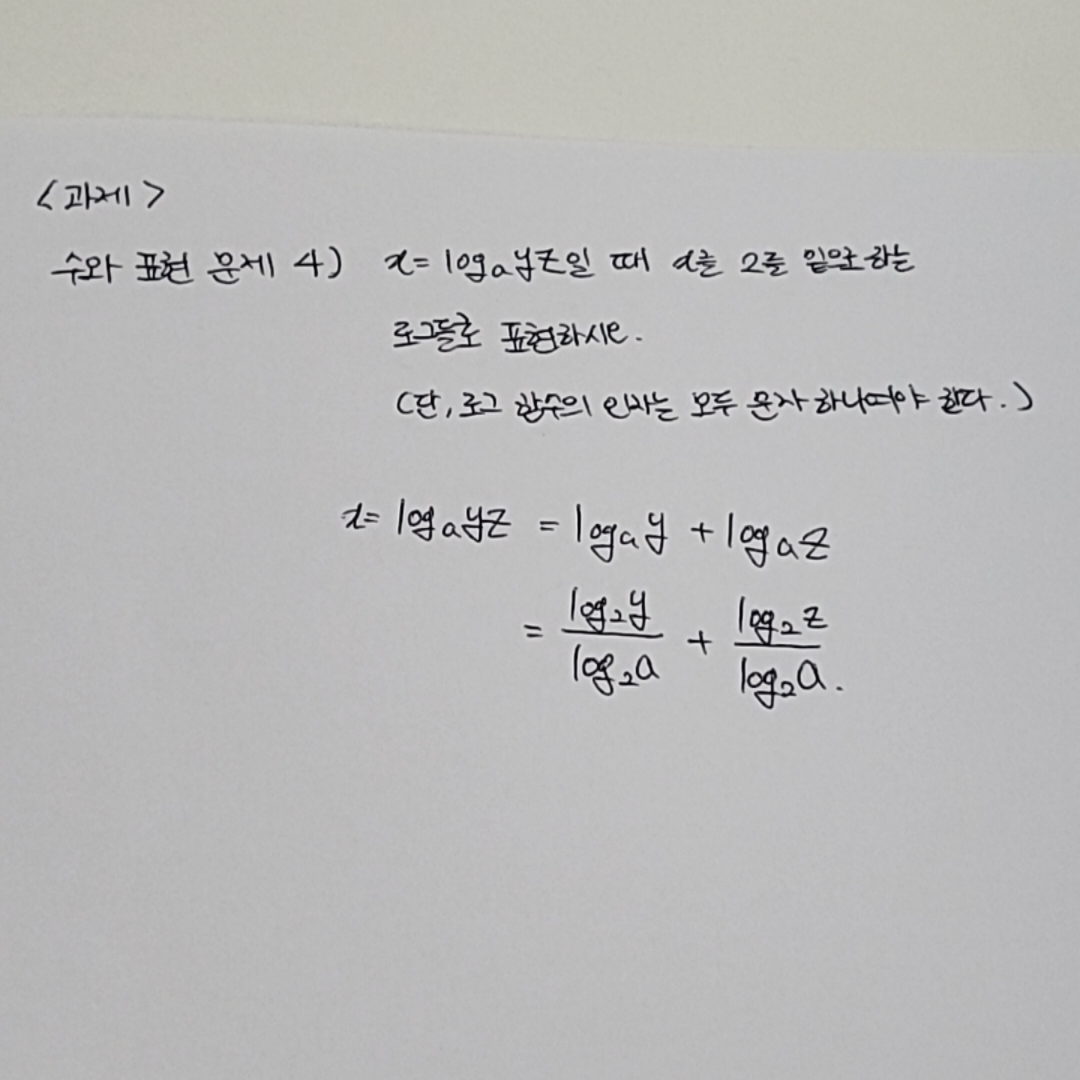 <과제>
수와 표현 문제 4) x = logₐyz일 때 x를 2를 밑으로 하는
로그들로 표현하시오.
(단, 로그 함수의 인자는 모두 문자 하나여야 한다.)
x = logₐyz = logₐy + logₐz
= log₂y / log₂a + log₂z / log₂a.